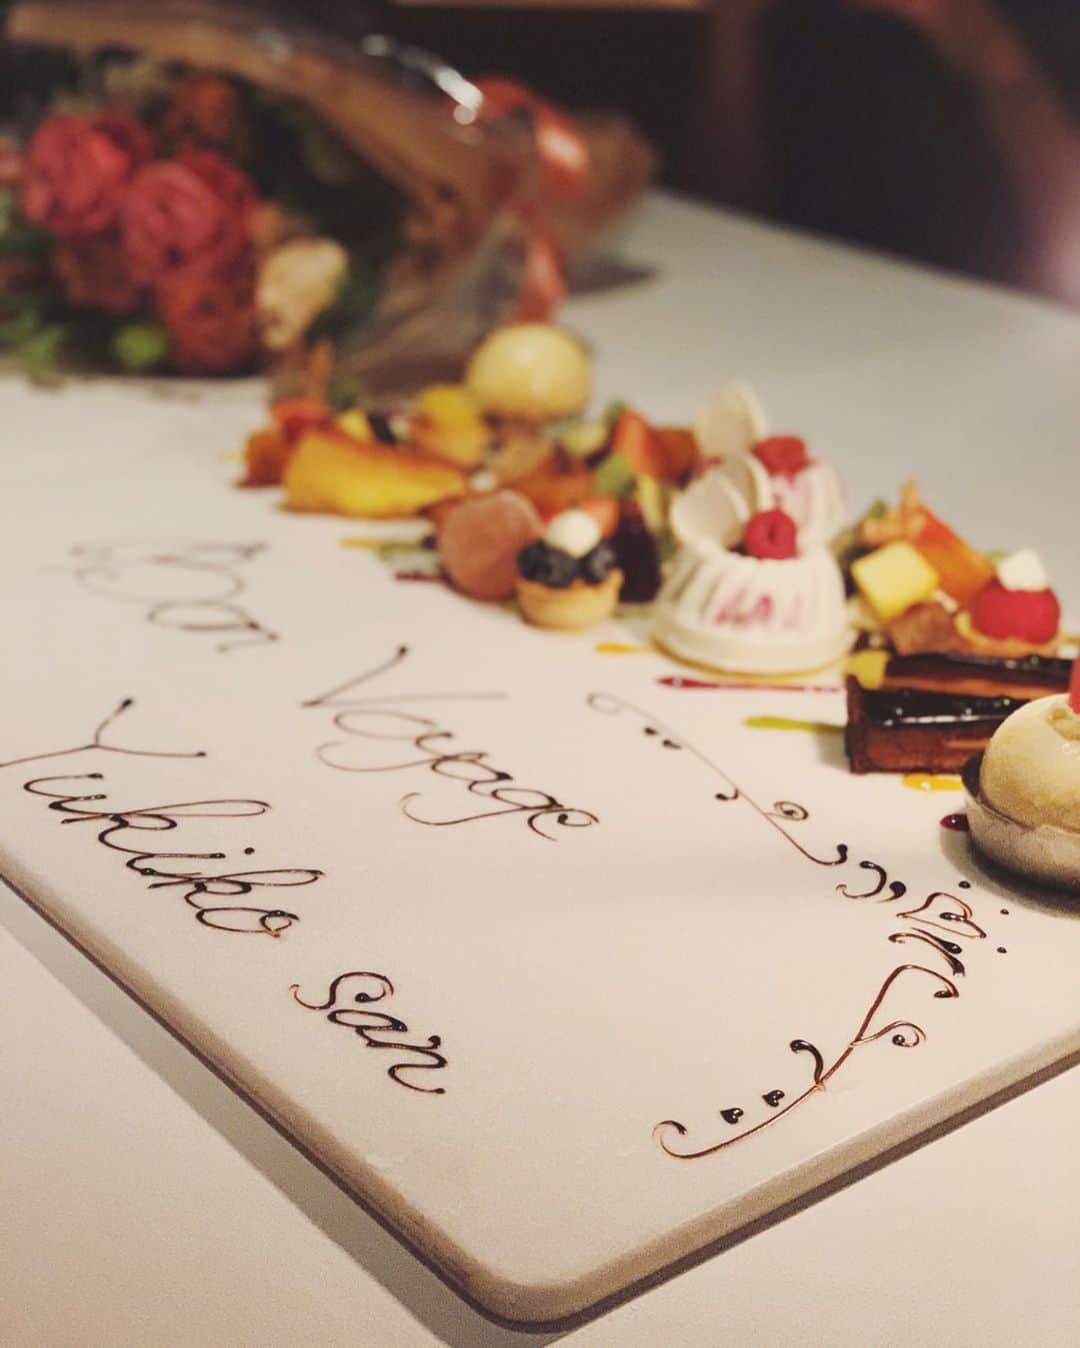 Bon Voyage
Yukiko san